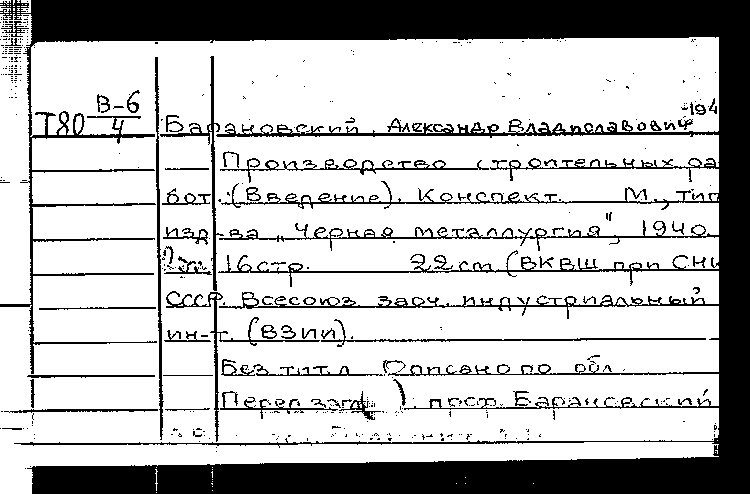 Т80 В-6/4
Барановский, Александр Владиславович, 194
Производство строительных ра
бот. (Введение). Конспект. М., тип
изд-ва „Черная металлургия", 1940.
16 стр. 22 см (ВКВШ при СНК
СССР. Всесоюз заоч. индустриальный
ин-т. (ВЗИИ).
Без тит. л Описано по обл.
Перед загл ). проф. Барановский